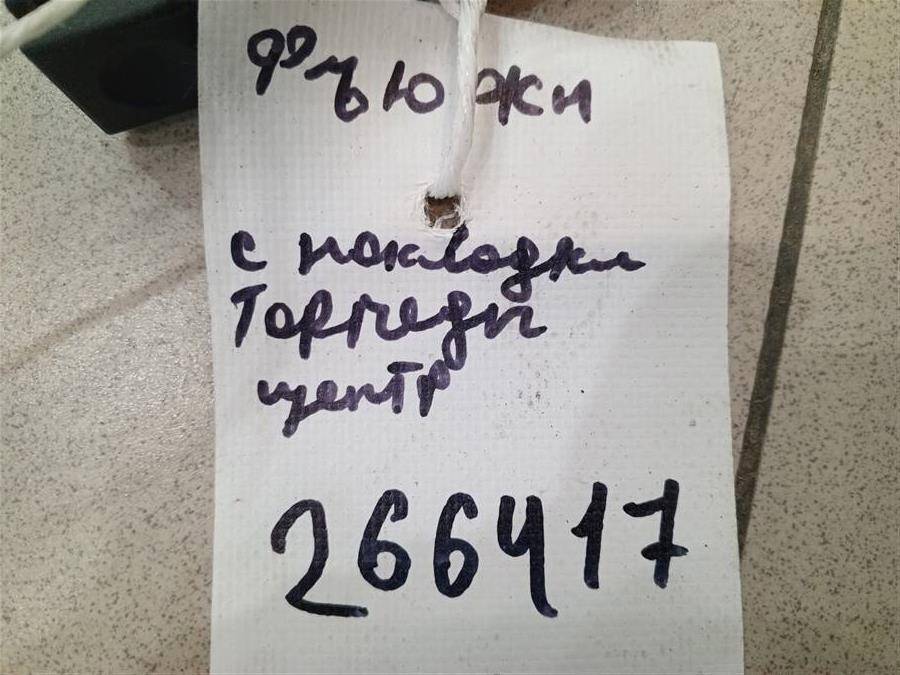 с накладки
Торпеды
центр
266417